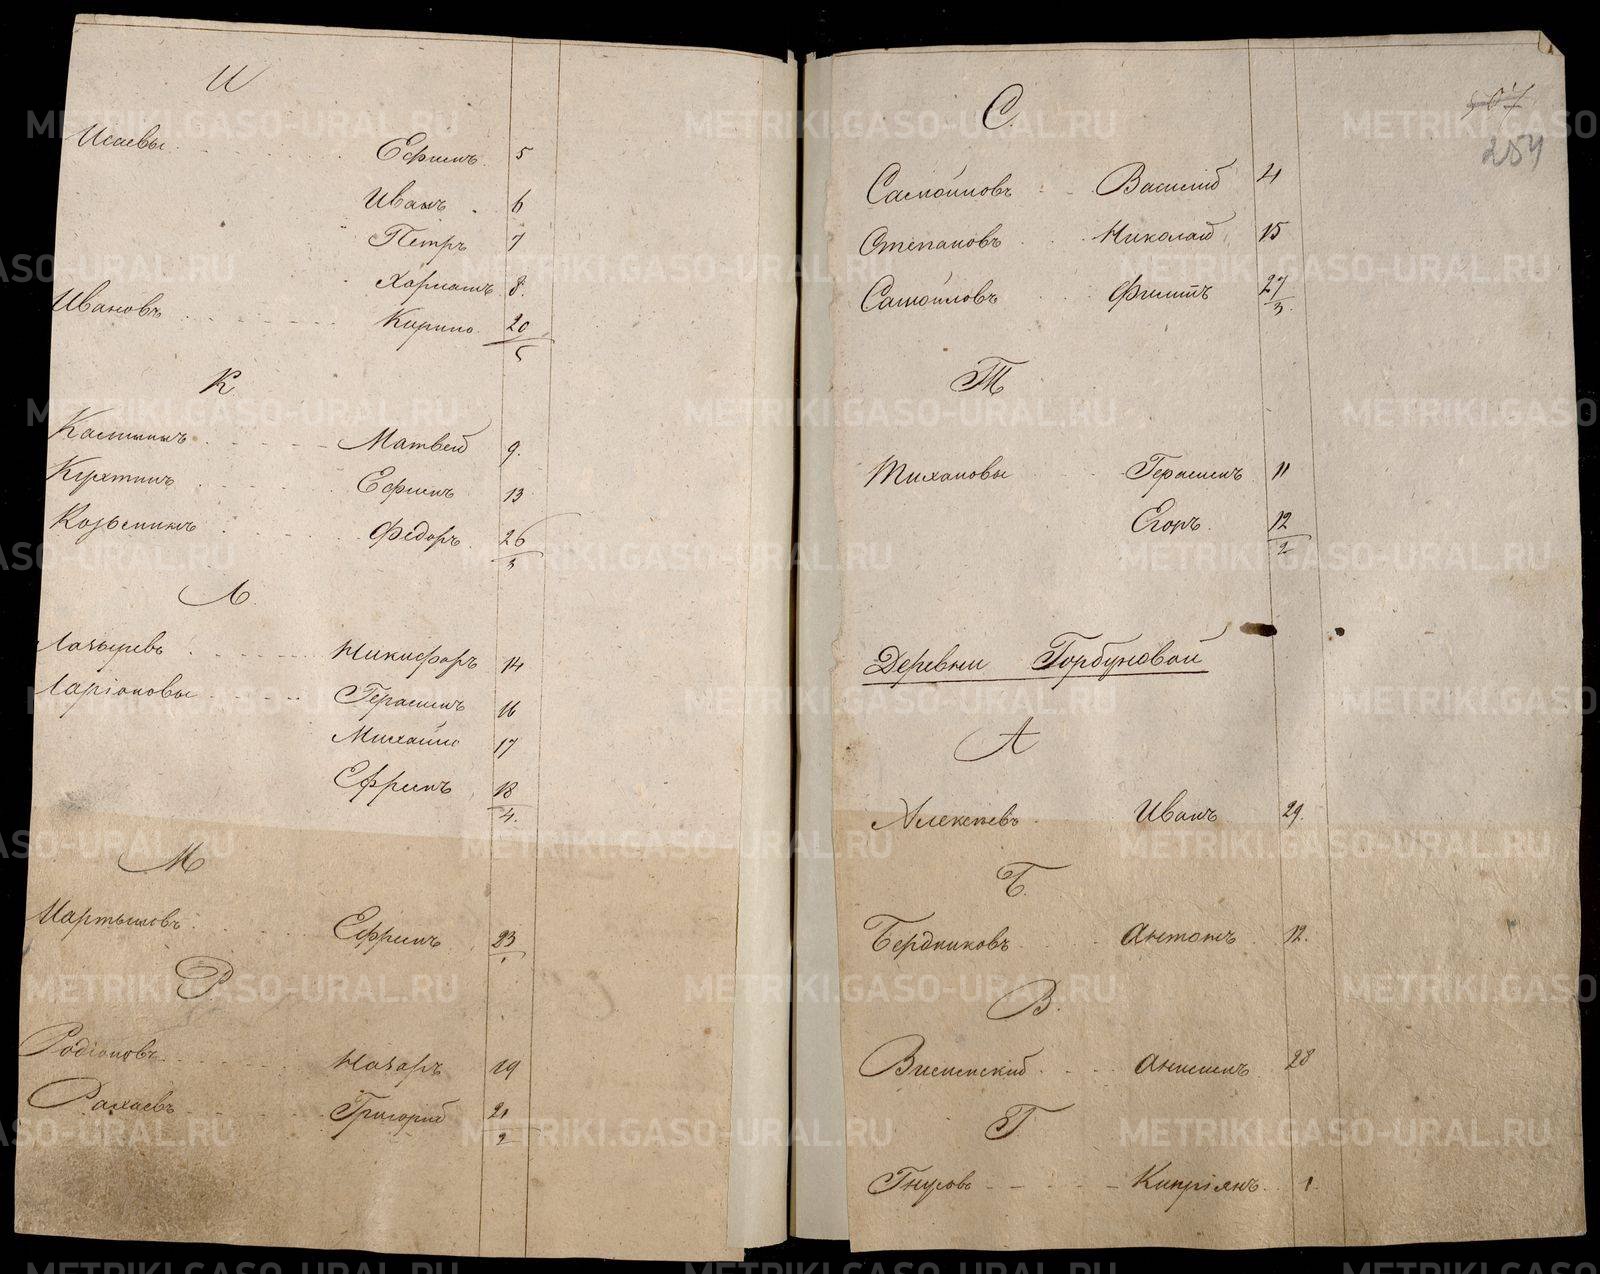 И
Исаевы Ефимъ 5
Иванъ 6
Петръ 7
8.
Ивановъ Кирило 20
5
К
Матвей 9.
Кухтинъ Ефимъ 13
Козьминъ Федоръ 26
3
Л
Лазаревъ Никифоръ 14
Ларіоновы Герасимъ 16
Михайло 17
Ефримъ 18
4.
М
Мартыновъ Ефримъ 23
1
Р
Родіоновъ Назаръ 19
Григорій 21
2
С.
707
254
Самойловъ Василій 4
Степановъ Николай 15
Самойловъ Филипъ 27
3.
Т
Тихановы Герасимъ 11
Егоръ 12
2
Деревни Горбуновой
А
Алексѣевъ Иванъ 29.
Б.
Бердниковъ Антонъ 12.
В.
Висимскій Анисимъ 28
Г
Гнусовъ Кипріянъ 1
METRIKI.GASO-URAL.RU